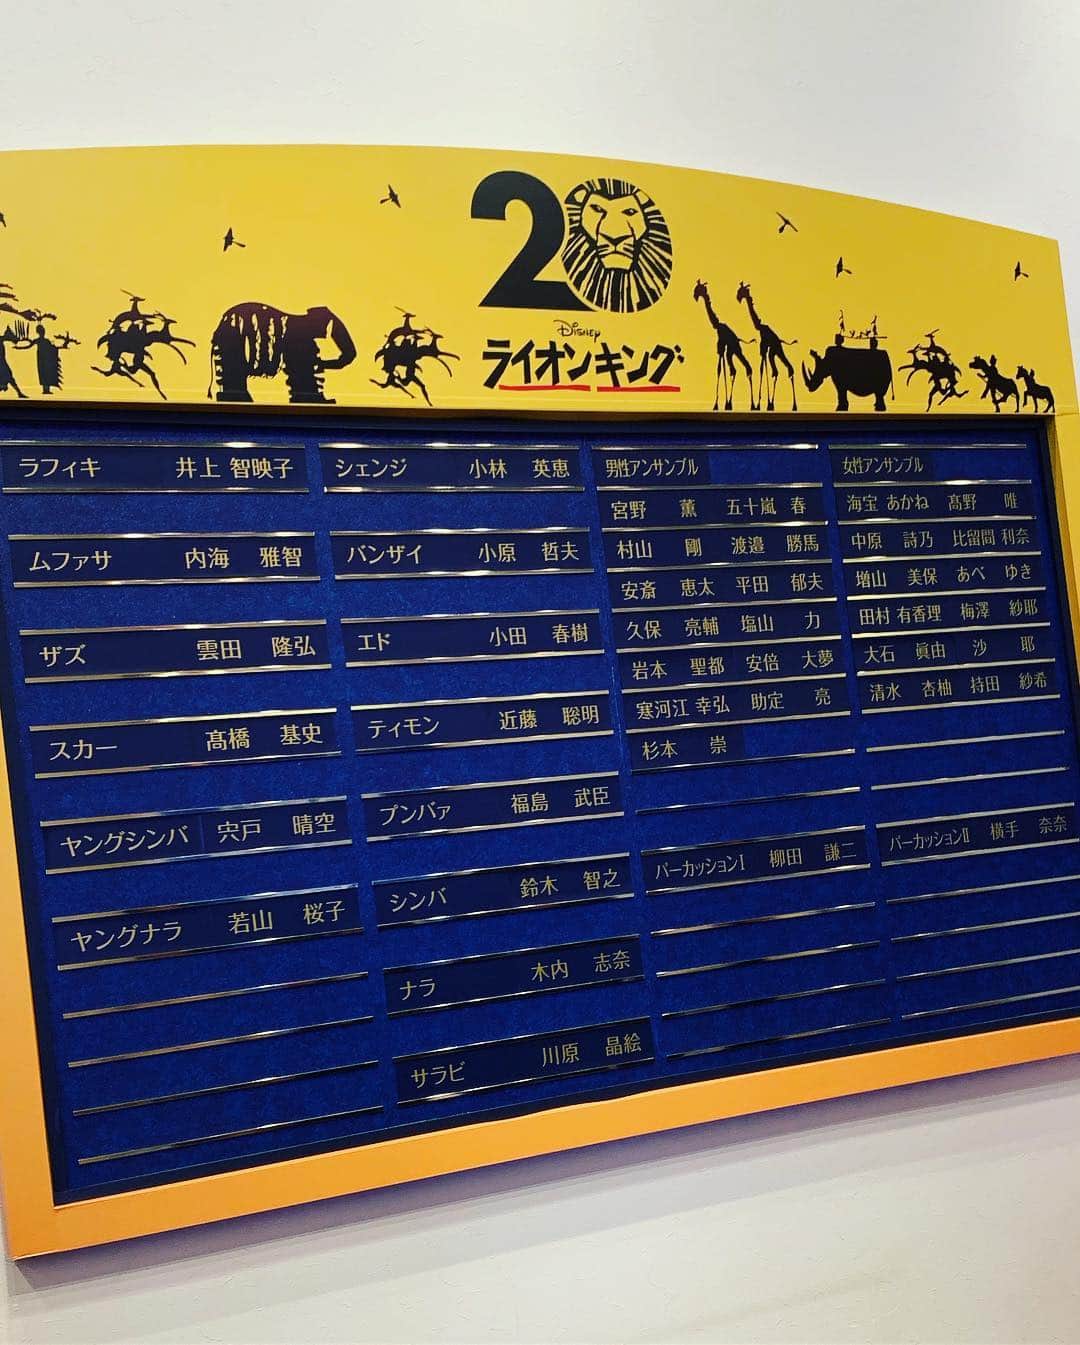 20
Disney
ライオンキング
ラフィキ 井上 智映子
ムファサ 内海 雅智
ザズ 雲田 隆弘
スカー 髙橋 基史
ヤングシンバ 宍戸 晴空
ヤングナラ 若山 桜子
シェンジ 小林 英恵
バンザイ 小原 哲夫
エド 小田 春樹
ティモン 近藤 聡明
プンバァ 福島 武臣
シンバ 鈴木 智之
ナラ 木内 志奈
サラビ 川原 晶絵
男性アンサンブル
宮野 薫 五十嵐 春
村山 剛 渡邉 勝馬
安斎 恵太 平田 郁夫
久保 亮輔 塩山 力
岩本 聖都 安倍 大夢
寒河江 幸弘 助定 亮
杉本 崇
パーカッションI 柳田 謙二
女性アンサンブル
海宝 あかね 髙野 唯
中原 詩乃 比留間 利奈
増山 美保 あべ ゆき
田村 有香理 梅澤 紗耶
大石 眞由 沙 耶
清水 杏柚 持田 紗希
パーカッションII 横手 奈奈